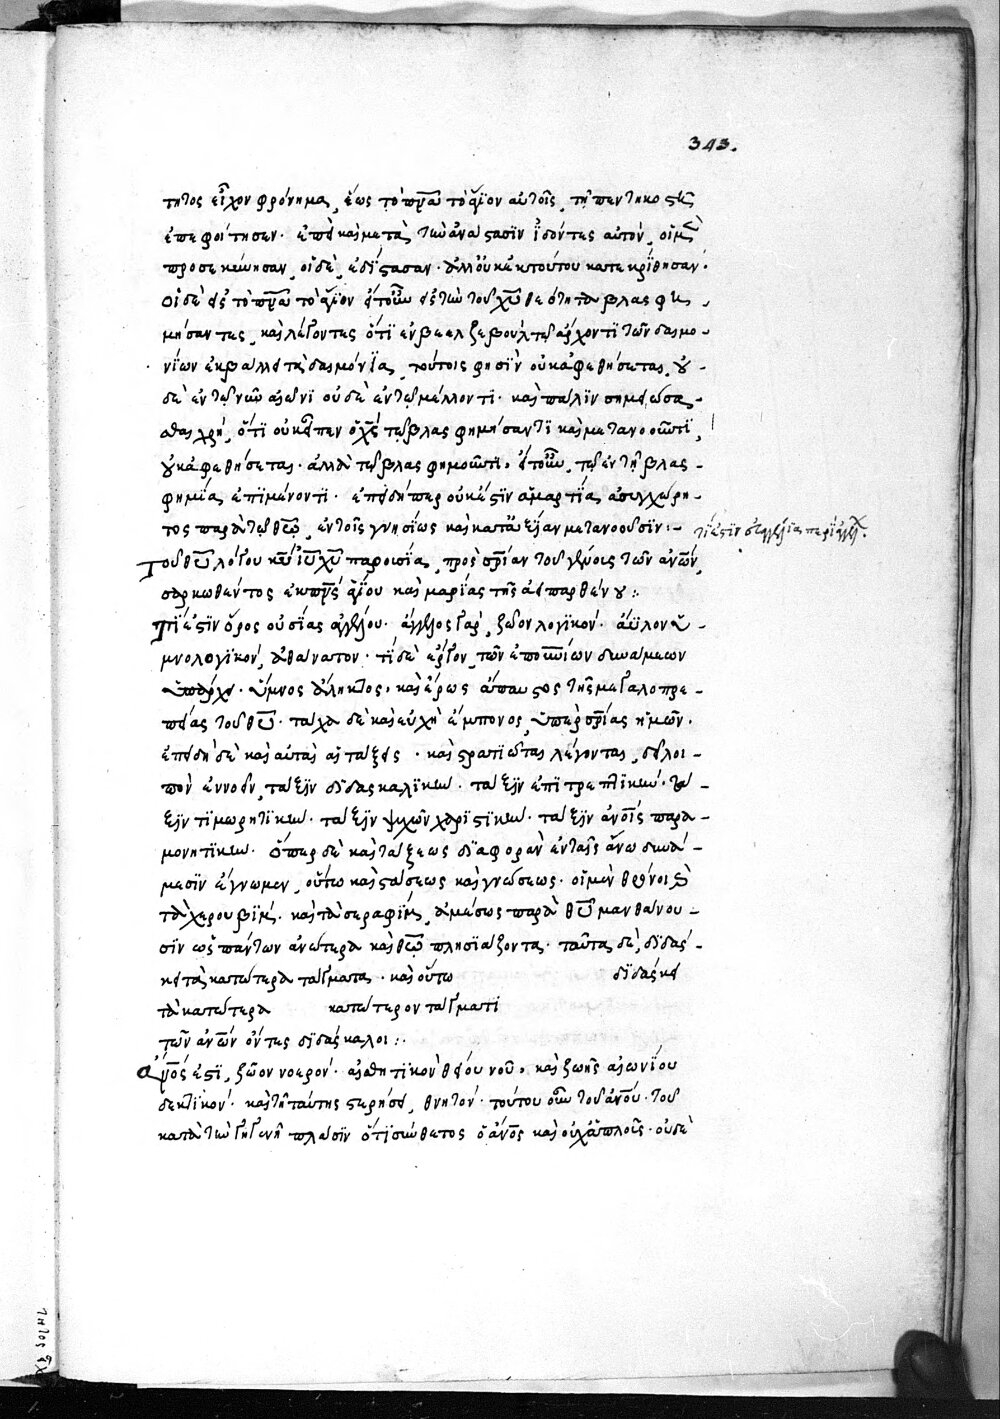 343.
τητος εἶχον φρόνημα, ἕως τὸ πνᾶ τὸ ἅγϊον αὐτοῖς, τῆ πεντηκοστῆ
ἐπεφοίτησεν. ἐπεὶ καὶ μετὰ τὴν ἀνάστασϊν ἰδόντες αὐτόν, οἱ μὲν
προσεκύνησαν, οἱ δὲ, ἐδίστασαν. ἀλλ' οὐκ ἐκ τούτου κατεκρίθησαν.
οἱ δὲ εἰς τὸ πνᾶ τὸ ἅγϊον ἤτοι εἰς τὴν τοῦ χῦ θεότητα βλασφη-
μήσαντες, καὶ λέγοντες ὅτϊ ἐν βεελζεβοὺλ τῶ ἄρχοντι τῶν δαιμο-
νίων ἐκβάλλει τὰ δαιμόνϊα, τούτοις φησὶν οὐκ ἀφεθήσεται, οὐ-
δὲ ἐν τῶ νῦν αἰῶνϊ οὐδὲ ἐν τῶ μέλλοντϊ. καὶ πάλϊν σημειώσα-
σθαι χρὴ, ὅτϊ οὐκ εἶπεν ὁ χς τῶ βλασφημήσαντϊ καὶ μετανοοῦντϊ,
οὐκ ἀφεθήσεται. ἀλλὰ τῶ βλασφημοῦντϊ, ἤτοι, τῶ ἐν τῆ βλας-
φημία ἐπϊμένοντϊ. ἐπειδήπερ οὐκ ἔστϊν ἁμαρτία ἀσυγχώρη-
τος παρὰ τῶ θῶ, ἐν τοῖς γνησίως καὶ κατ' ἀξίαν μετανοοῦσϊν:-
τοῦ θῦ λόγου κυ ἰυ χυ παρουσία, πρὸς σρίαν τοῦ γένους τῶν ἀνων,
σαρκωθέντος ἐκ πνς ἁγίου καὶ μαρίας τῆς ἀειπαρθένου:
τί ἐστϊν ὅρος οὐσίας ἀγγέλου. ἄγγελος γάρ, ζῶον λογϊκόν. ἄϋλον ὑ-
μνολογϊκόν, ἀθάνατον. τί δὲ ἔργον τῶν ἐπουνίων δυνάμεων
ὑπάρχει. ὕμνος ἄληκτος, καὶ ἔρως ἄπαυστος τῆς μεγαλοπρε-
πείας τοῦ θῦ. τάχα δὲ καὶ εὐχὴ ἔμπονος, ὑπὲρ σρίας ἡμῶν.
ἐπειδὴ δὲ καὶ αὐταὶ αἱ τάξεις. καὶ στρατϊῶται λέγονται, δεῖ λοι-
πὸν ἐννοεῖν, τάξϊν δϊδασκαλϊκήν. τάξϊν ἐπϊτρεπτϊκήν. τά-
ξϊν τϊμωρητϊκήν. τάξϊν ψυχῶν χωριστϊκήν. τάξϊν ἀνοις παρα-
μονητϊκήν. ὅπερ δὲ καὶ τάξεως δϊαφορὰν ἐν ταῖς ἄνω δυνά-
μεσϊν ἔγνωμεν, οὕτω καὶ στάσεως καὶ γνώσεως. οἱ μὲν θρόνοι καὶ
τὰ χερουβϊμ. καὶ τὰ σεραφὶμ, ἀμέσως παρὰ θῦ μανθάνου-
σϊν ὡς πάντων ἀνώτερα καὶ θῶ πλησϊάζοντα. ταῦτα δὲ, δϊδάσ-
κει τὰ κατώτερα τάγματα. καὶ οὕτω δϊδάσκει
τὰ κατώτερα κατώτερον τάγματϊ
τῶν ἀνων ὄντες δϊδάσκαλοι:.
ἄνος ἐστὶ, ζῶον νοερόν. αἰσθητϊκὸν θείου νοῦ, καὶ ζωῆς αἰωνΐου
δεκτϊκόν. καὶ τῆ ταύτης στερήσει, θνητόν. τούτου οὖν τοῦ ἀνου. τοῦ
κατὰ τὴν γηγενῆ πλάσϊν ὅτϊ σύνθετος ὁ ἄνος καὶ οὐχ ἁπλοῦς. οὐδὲ